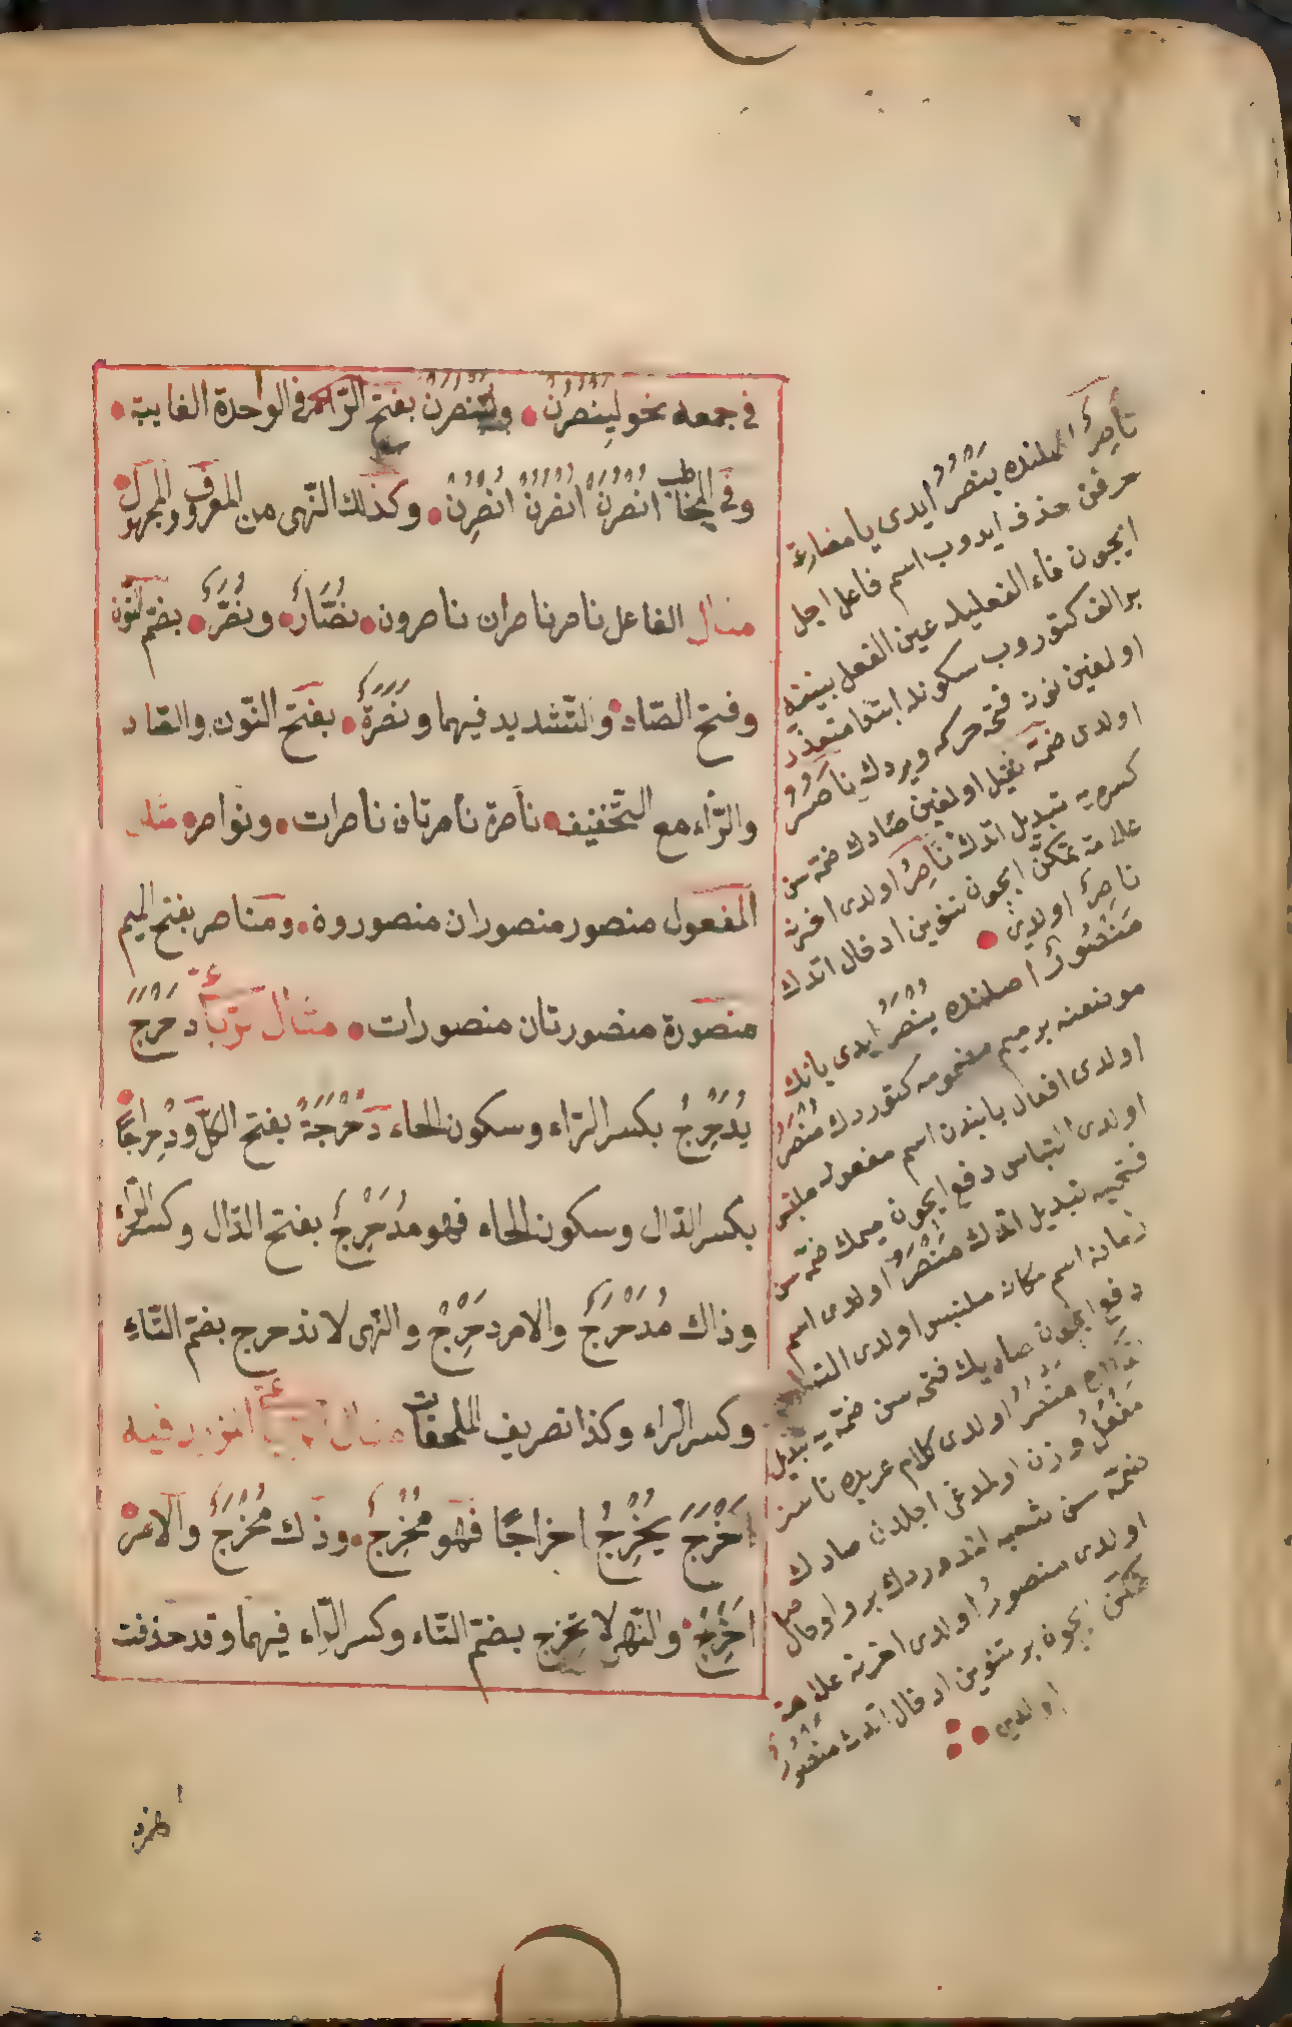 في جمعه نحو لينصرن ولتنصرن بفتح الراء في الواحدة الغايبة
وفي المخاطب انصرن انصرن انصرن وكذلك النهى من المعروف والمجهول
مثال الفاعل ناصر ناصران ناصرون نصّار ونصّر بضم النون
وفتح الصّاد والتّشديد فيهما ونَصَرَة بفتح النّون والصّاد
والرّاء مع التّخفيف ناصرة ناصرتان ناصرات ونواصر مثال
المفعول منصور منصوران منصورون ومناصر بفتح الميم
منصورة منصورتان منصورات مثال دَحْرَجَ
يُدَحْرِجُ بكسر الرّاء وسكون الحاء دَحْرَجَةً بفتح الكلّ ودِحْرَاجًا
بكسر الدّال وسكون الحاء فهو مُدَحْرِجٌ بفتح الدّال وكسر الرّاء
وذاك مُدَحْرَجٌ والامر دَحْرِجْ والنّهى لا تدحرج بضمّ التّاء
وكسر الرّاء وكذا تصريف الملحقات مثال المزيد فيه
اَخْرَجَ يُخْرِجُ اخراجًا فهو مُخْرِجٌ وذلك مُخْرَجٌ والامر
اَخْرِجْ والنّهى لا تخرج بضمّ التّاء وكسر الرّاء فيهما وقد حذفت
ناصرٌ اصلنده ينصر ايدى يا مضارعة
حرفن حذف ايدوب اسم فاعل اجل
ايچون فاء الفعليله عين الفعل بيننه
بر الف كتوروب سكونله ابتدا متعذّر
اولمغين نونه فتحه حركه ويردك ناصر
اولدى ضمّه ثقيل اولمغين صادك ضمّه سن
كسره يه تبديل اتدك ناصر اولدى اخرنه
علامة تمكّن ايچون تنوين ادخال اتدك
ناصرٌ اولدى
منصورٌ اصلنده ينصر ايدى يانك
موضعنه بر ميم مضمومه كتوردك منصر
اولدى افعال بابندن اسم مفعوله ملتبس
اولدى التباس دفع ايچون ميمك ضمّه سن
فتحه يه تبديل اتدك منصر اولدى اسم
زمانه اسم مكانه ملتبس اولدى التباس
دفع ايچون صاديك فتحه سن ضمّه يه تبديل
منصر اولدى كلام عربده ناسز
مفعل وزن اولمدغى اجلدن صادك
ضمّه سن بر واو
اولدى منصور اولدى اخرنه علامة
تمكّن ايچون بر تنوين ادخال اتدك منصورٌ
اولدى